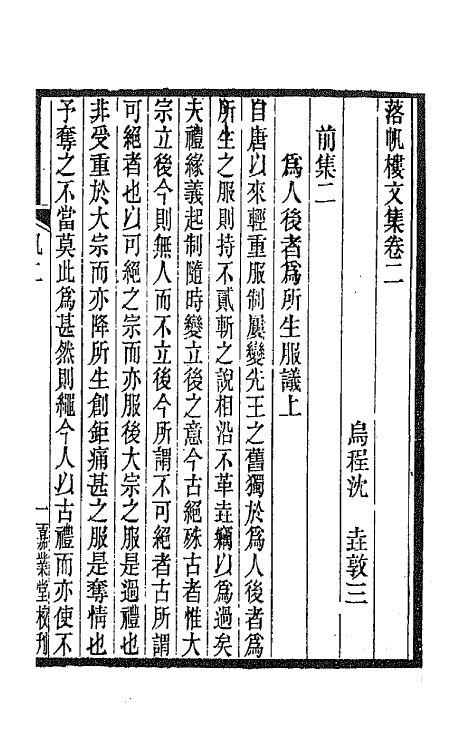 落帆樓文集卷二
烏程沈　垚敦三
前集二
爲人後者爲所生服議上
自唐以來輕重服制屢變先王之舊獨於爲人後者爲
所生之服則持不貳斬之說相沿不革垚竊以爲過矣
夫禮緣義起制隨時變立後之意今古絕殊古者惟大
宗立後今則無人而不立後今所謂不可絕者古所謂
可絕者也以可絕之宗而亦服後大宗之服是過禮也
非受重於大宗而亦降所生創鉅痛甚之服是奪情也
予奪之不當莫此爲甚然則繩今人以古禮而亦使不
一　嘉業堂校刊